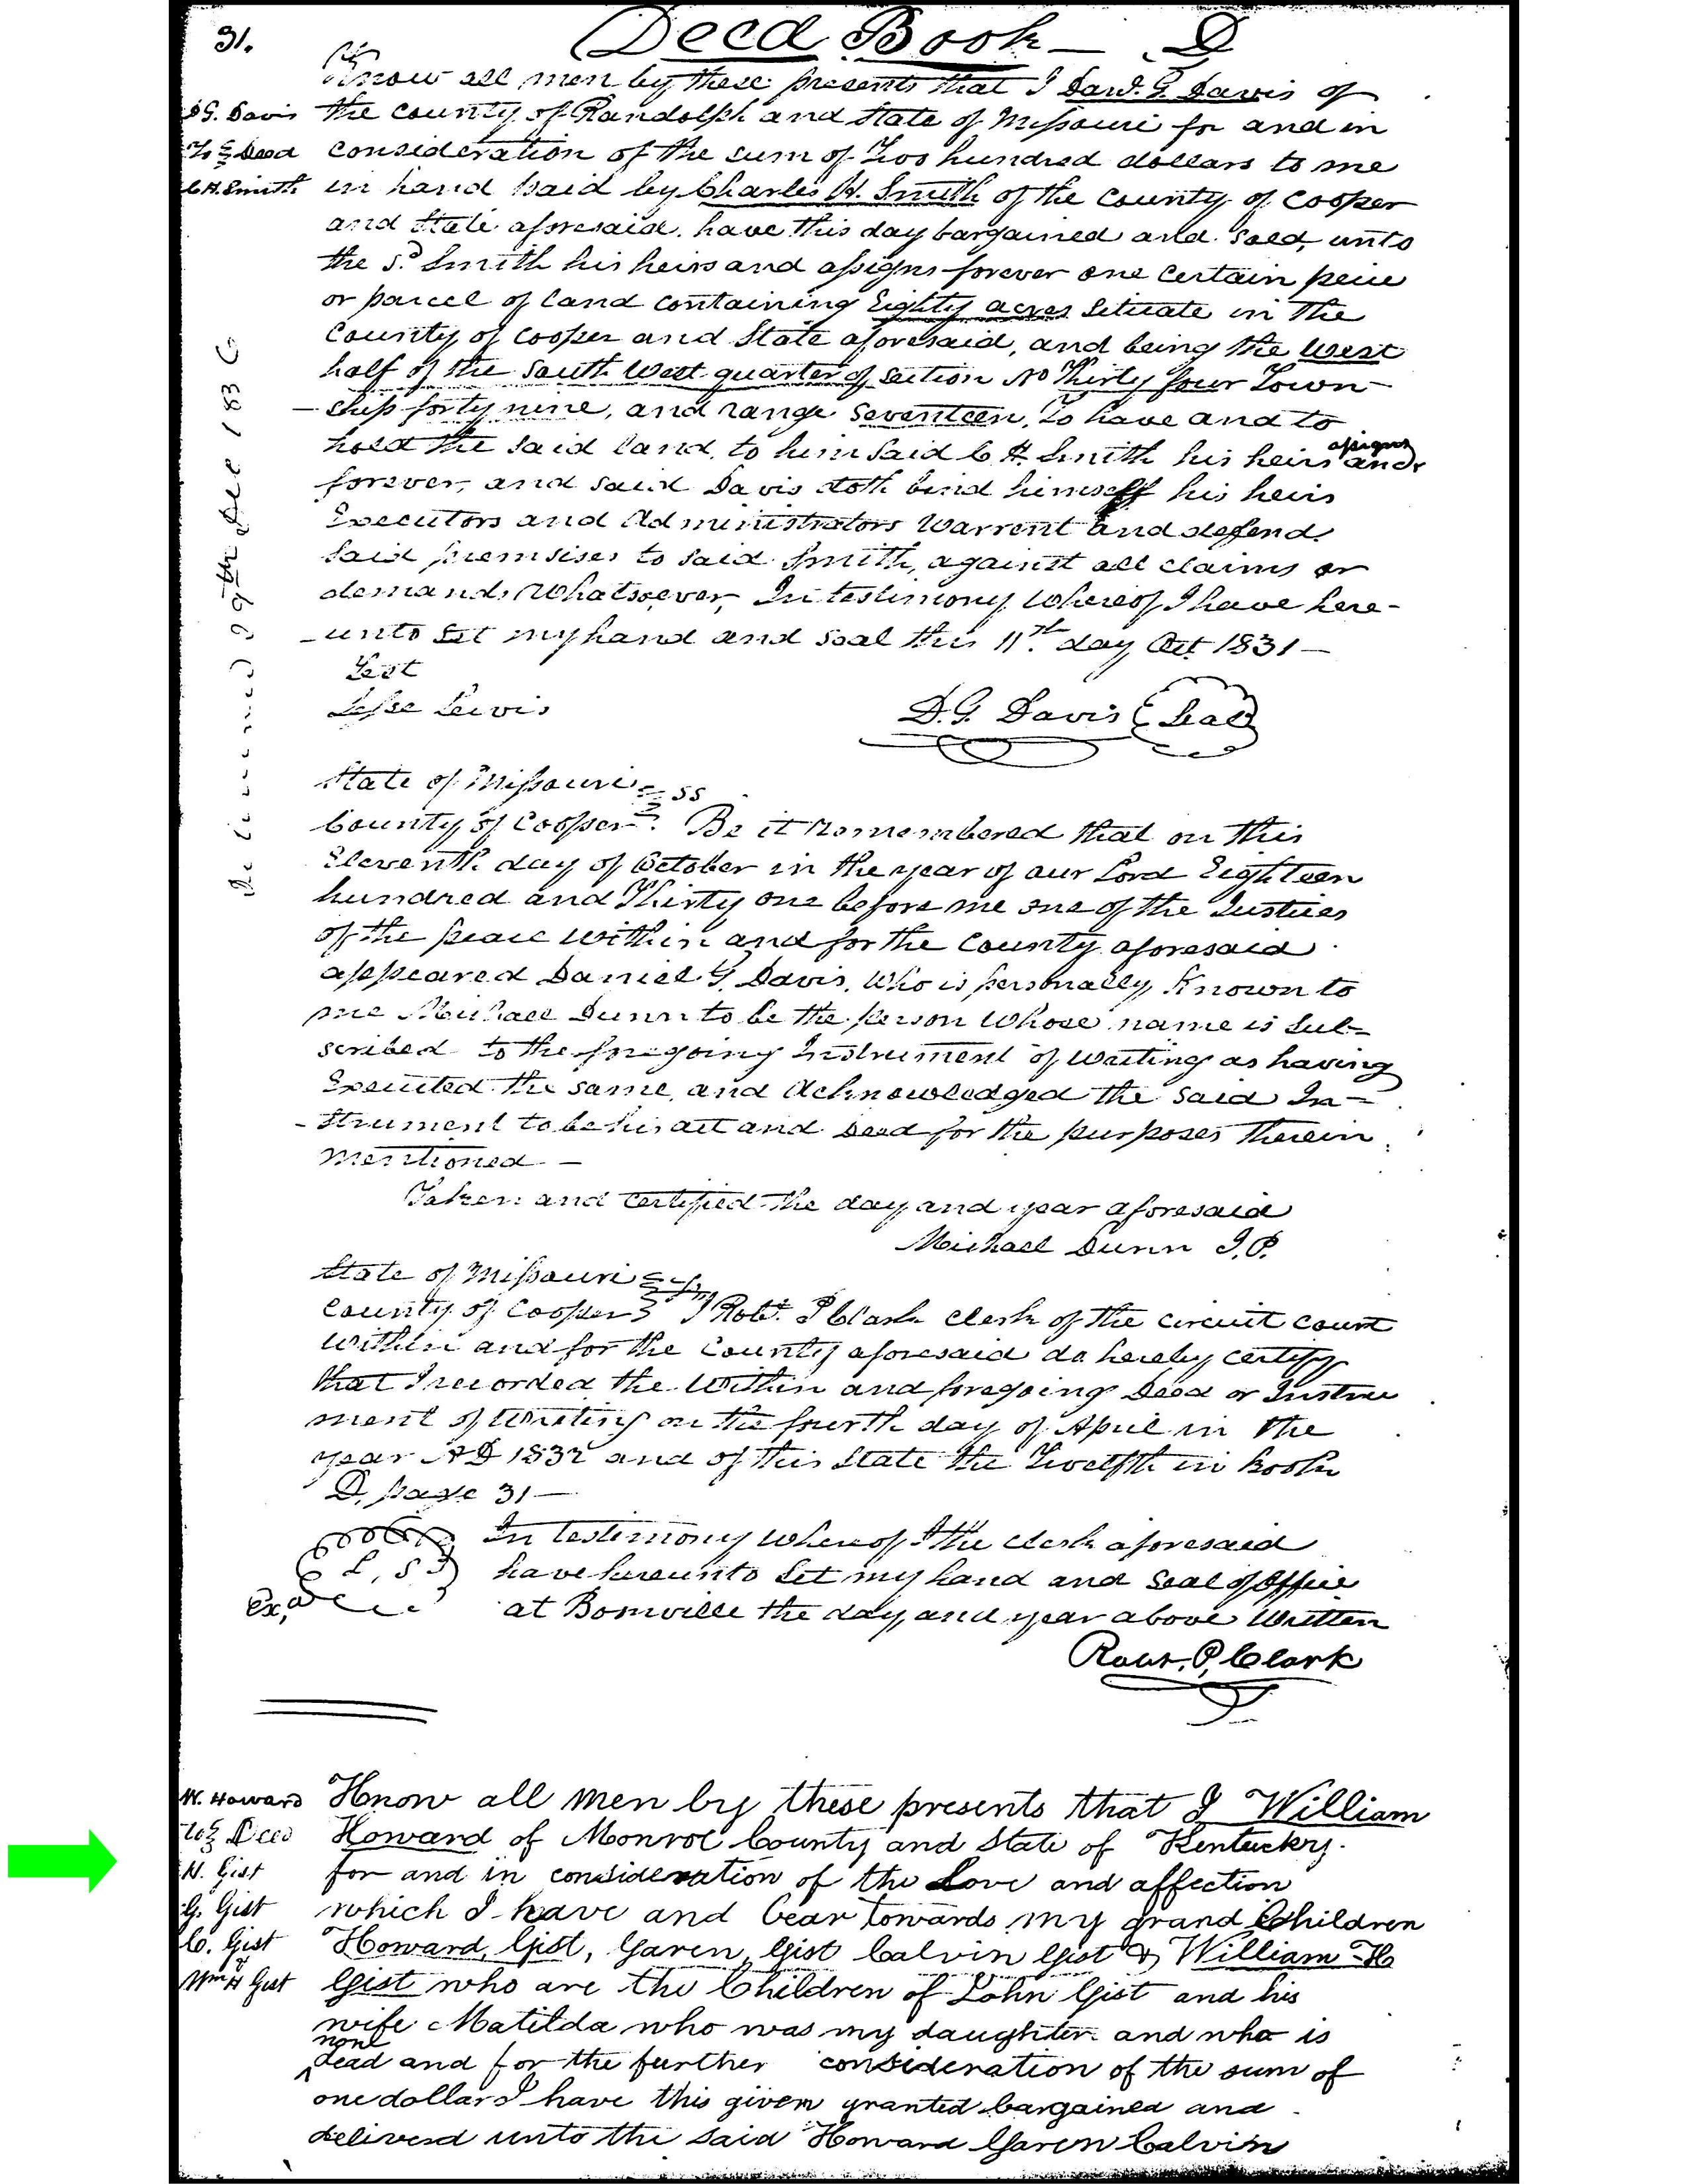 31.
Deed Book — D
Know all men by these presents that I Danl. G. Davis of
D G. Davis
the County of Randolph and State of Missouri for and in
To Deed
consideration of the sum of Two hundred dollars to me
C. H. Smith
in hand paid by Charles H. Smith of the County of Cooper
and State aforesaid. have this day bargained and Sold, unto
the Sd. Smith his heirs and assigns forever one Certain peice
or parcel of land containing Eighty acres Situate in the
County of Cooper and State aforesaid, and being the West
half of the South West quarter of Section No Thirty four Town-
-ship forty nine, and range Seventeen, To have and to
hold the said land, to him said C H. Smith his heirs and assigns
forever, and said Davis doth bind himself his heirs
Executors and Administrators Warrent and defend
said premsises to said Smith, against all claims or
demands Whatsoever, In testimony Whereof I have here-
-unto set my hand and seal this 11th. day Oct 1831—
Test
Jesse Lewis
D. G. Davis Seal
19th Dec 183
State of Missouri ss
County of Cooper. Be it remembered that on this
Eleventh day of October in the year of our Lord Eighteen
hundred and Thirty one before me one of the Justices
of the peace Within and for the County aforesaid
appeared Daniel G. Davis, Who is personally Known to
me Michael Dunn to be the person Whose name is Sub-
scribed to the foregoing Instrument of Writing as having
Executed the same, and Acknowledged the said In-
-strument to be his act and Deed for the purposes therein
mentioned —
Taken and Certified the day and year aforesaid
Michael Dunn J. P.
State of Missouri
County of Cooper I Robt. P Clark Clerk of the Circuit Court
Within and for the County aforesaid do hereby certify
that I recorded the Within and foregoing Deed or Instru
ment of Writing on the fourth day of April in the
year AD 1832 and of this State the Twelfth in Book
D, page 31—
In testimony Whereof I the Clerk aforesaid
L, S
have hereunto Set my hand and Seal of Office
Exd
at Bonville the day and year above Written
Robt. P. Clark
W. Howard
Know all men by these presents that I William
to Deed
Howard of Monroe County and State of Kentucky.
H. Gist
for and in consideration of the Love and affection
G. Gist
which I have and bear towards my grand Children
C. Gist
Howard Gist, Garen Gist Calvin Gist & William H
Wm H Gist
Gist who are the Children of John Gist and his
wife Matilda who was my daughter and who is
now
dead and for the further consideration of the sum of
one dollar I have this given granted bargained and
deliverd unto the said Howard Garen Calvin